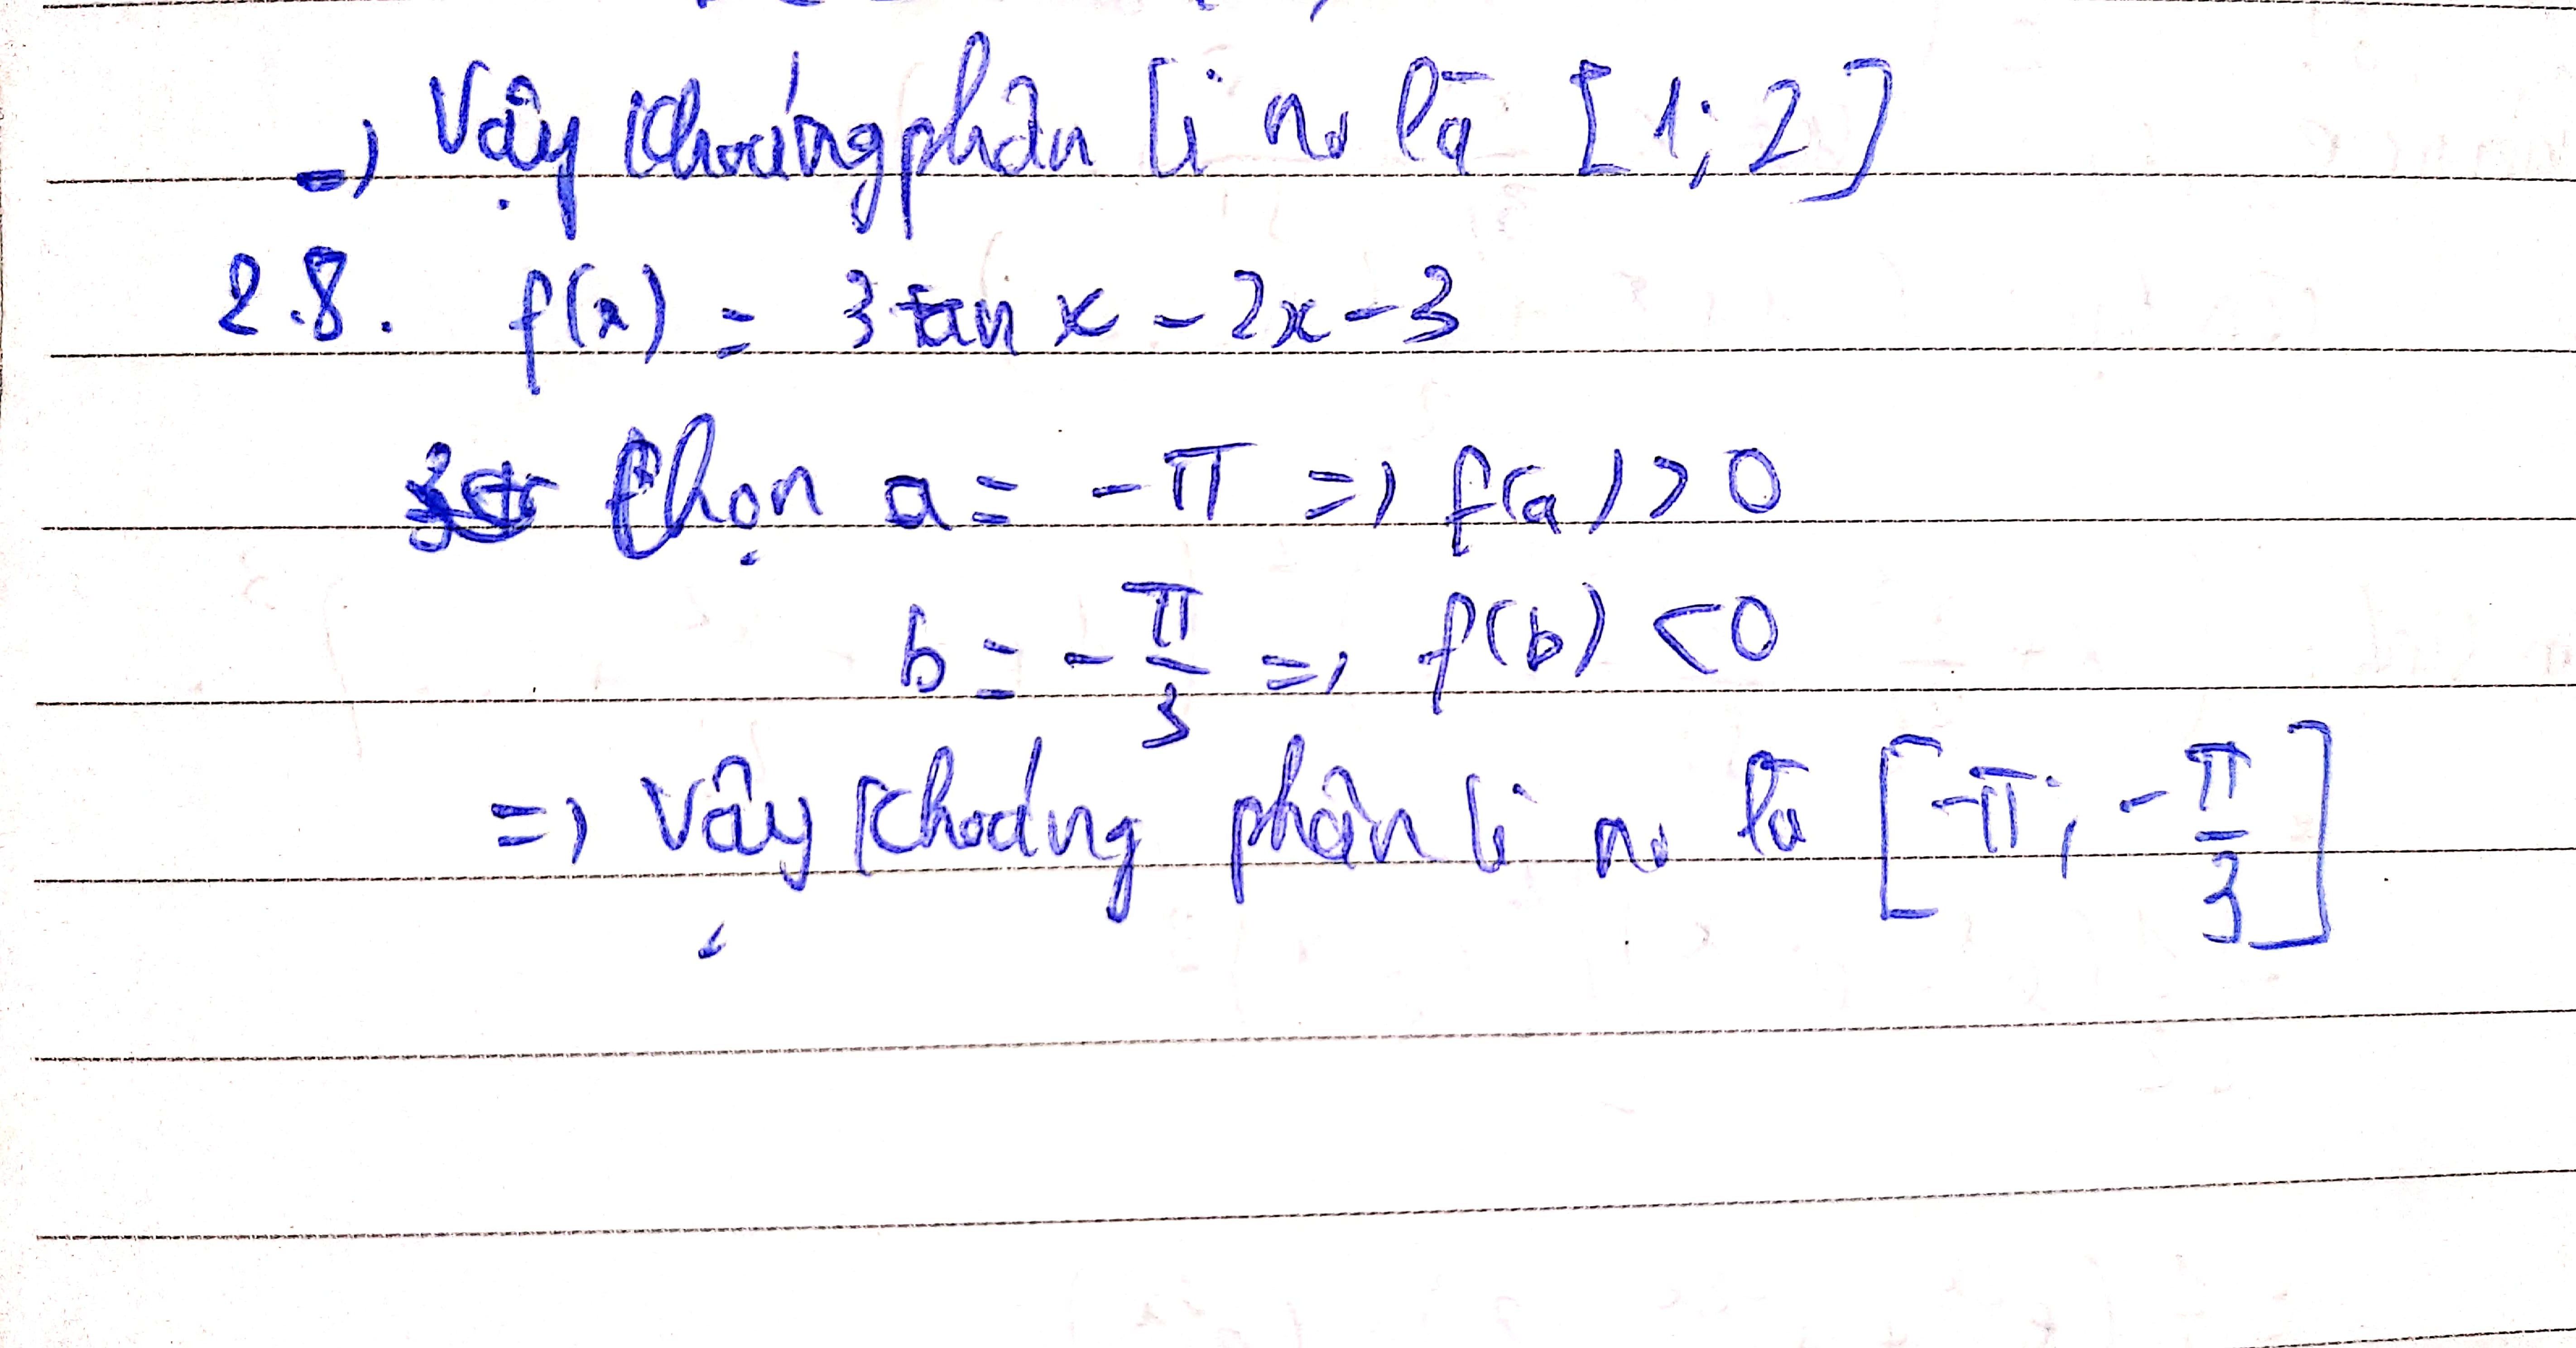 => Vậy khoảng phân li no là [1; 2]
2.8. f(x) = 3tan x - 2x - 3
Chọn a = -π => f(a) > 0
b = -π/3 => f(b) < 0
=> Vậy khoảng phân li no là [-π; -π/3]